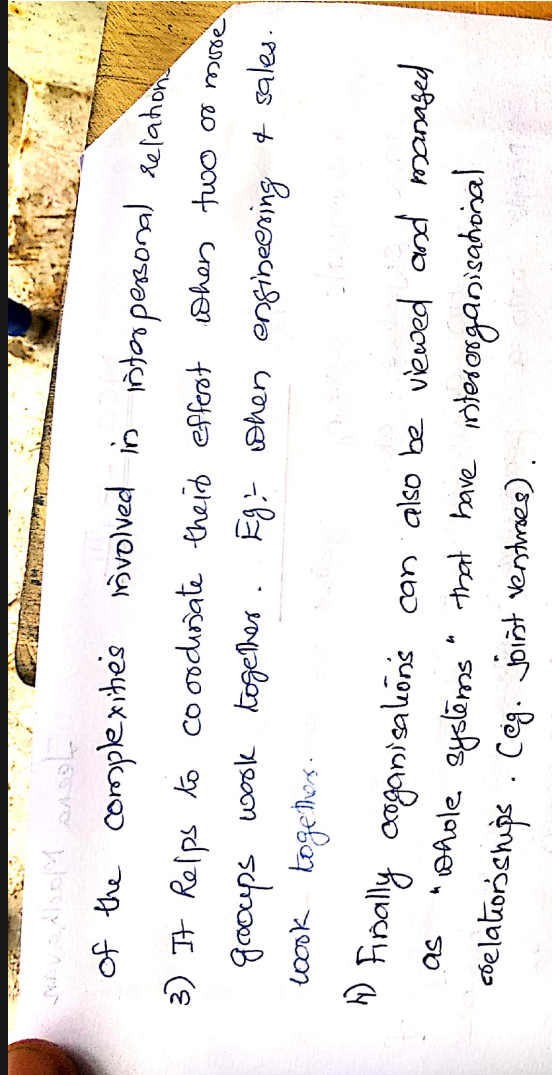 of the complexities involved in interpersonal relation
3) It helps to coordinate their effort when two or more
groups work together. Eg:- when engineering & sales.
work together.
4) Finally organisations can also be viewed and managed
as "whole systems" that have interorganisational
relationships. (eg. joint ventures).